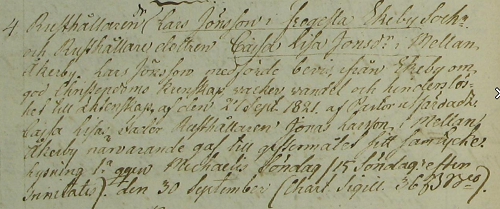 4 Rusthållaren Lars Jönsson i Frogesta Ekeby Sochn
och Rusthållare dottren Cajsa Lisa Jonsdr i Mellan
Åkerby. Lars Jönsson medförde bevis ifrån Ekeby om
god Christendoms Kunskap vacker vandel och hinderslös-
het till Ägtenskap af den 21 Sept. 1821. af Pastor utfärdadt
Cajsa Lisas Fader Rusthållaren Jonas Larsson i Mellan
Åkerby närvarande gaf till giftermålet sitt samtycke
Lysning 1a ggen Michaelis Söndag (15 Söndag. efter
Trinitatis). den 30 September (Chart. Sigill. 36